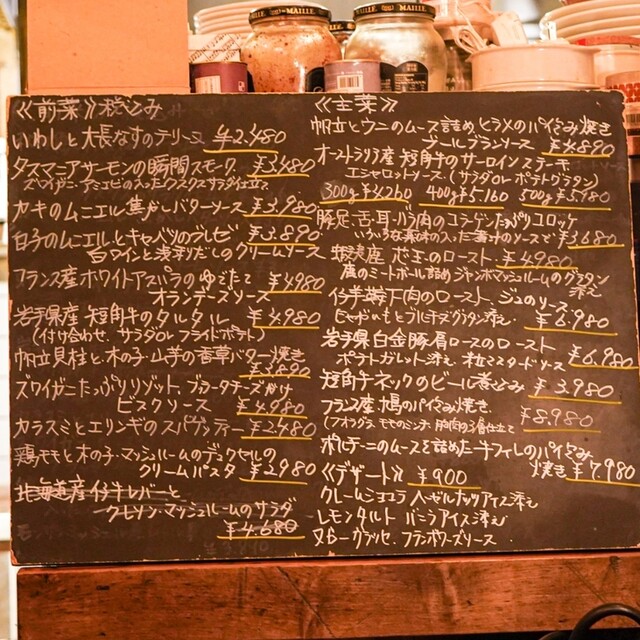 MAILLE
MAILLE
《前菜》税込み
いわしと大長なすのテリーヌ ¥2.480
タスマニアサーモンの瞬間スモーク ¥3.480
ズワイガニ・アボカドの入ったクスクスサラダ仕立て
カキのムニエル 焦がしバターソース ¥3.980
白子のムニエルとキャベツのブレゼ ¥3.890
白ワインと浅利だしのクリームソース
フランス産ホワイトアスパラのゆでたて ¥4.980
オランデーズソース
岩手県産 短角牛のタルタル ¥4.980
(付け合わせ、サラダor フライドポテト)
帆立貝柱と木の子・山芋の香草バター焼き
¥3.890
ズワイガニたっぷりリゾット、ブラータチーズがけ
ビスクソース ¥4.980
カラスミとエリンギのスパゲッティー ¥2.480
鶏モモと木の子・マッシュルームのデュクセルの
クリームパスタ ¥2980
北海道産仔牛レバーと
クレソン・マッシュルームのサラダ
¥4.680
《主菜》
帆立とウニのムース詰め、ヒラメのパイ包み焼き
ブールブランソース ¥4.890
オーストラリア産 短角牛のサーロインステーキ
エシャロットソース(サラダor ポテトグラタン)
300g ¥4.260 400g ¥5.160 500g ¥5.980
豚足・舌・耳・バラ肉のコラーゲンたっぷりコロッケ
いろいろな素味の入った煮汁のソースで ¥3.680
蝦夷産 芯玉のロースト ¥4.980
鹿のミートボール詰め ジャンボマッシュルームのグラタン添え
仔羊鞍下肉のロースト、ジュのソース
じゃがいもとブルーチーズグラタン添え ¥6.980
岩手県白金豚肩ロースのロースト
ポテトガレット添え 粒マスタードソース ¥6.980
短角牛ネックのビール煮込み ¥3.980
フランス産 鳩のパイ包み焼き
(フォアグラ、モモのミンチ、胸肉の3層仕立て ¥8.980
ポルチーニのムースを詰めた牛フィレのパイ包み
焼き ¥7.980
《デザート》 ¥900
クレームショコラ ヘーゼルナッツアイス添え
レモンタルト バニラアイス添え
ヌガーグラッセ、フランボワーズソース